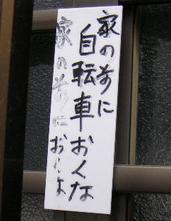 家の前に
自転車おくな
家の前に
おくな